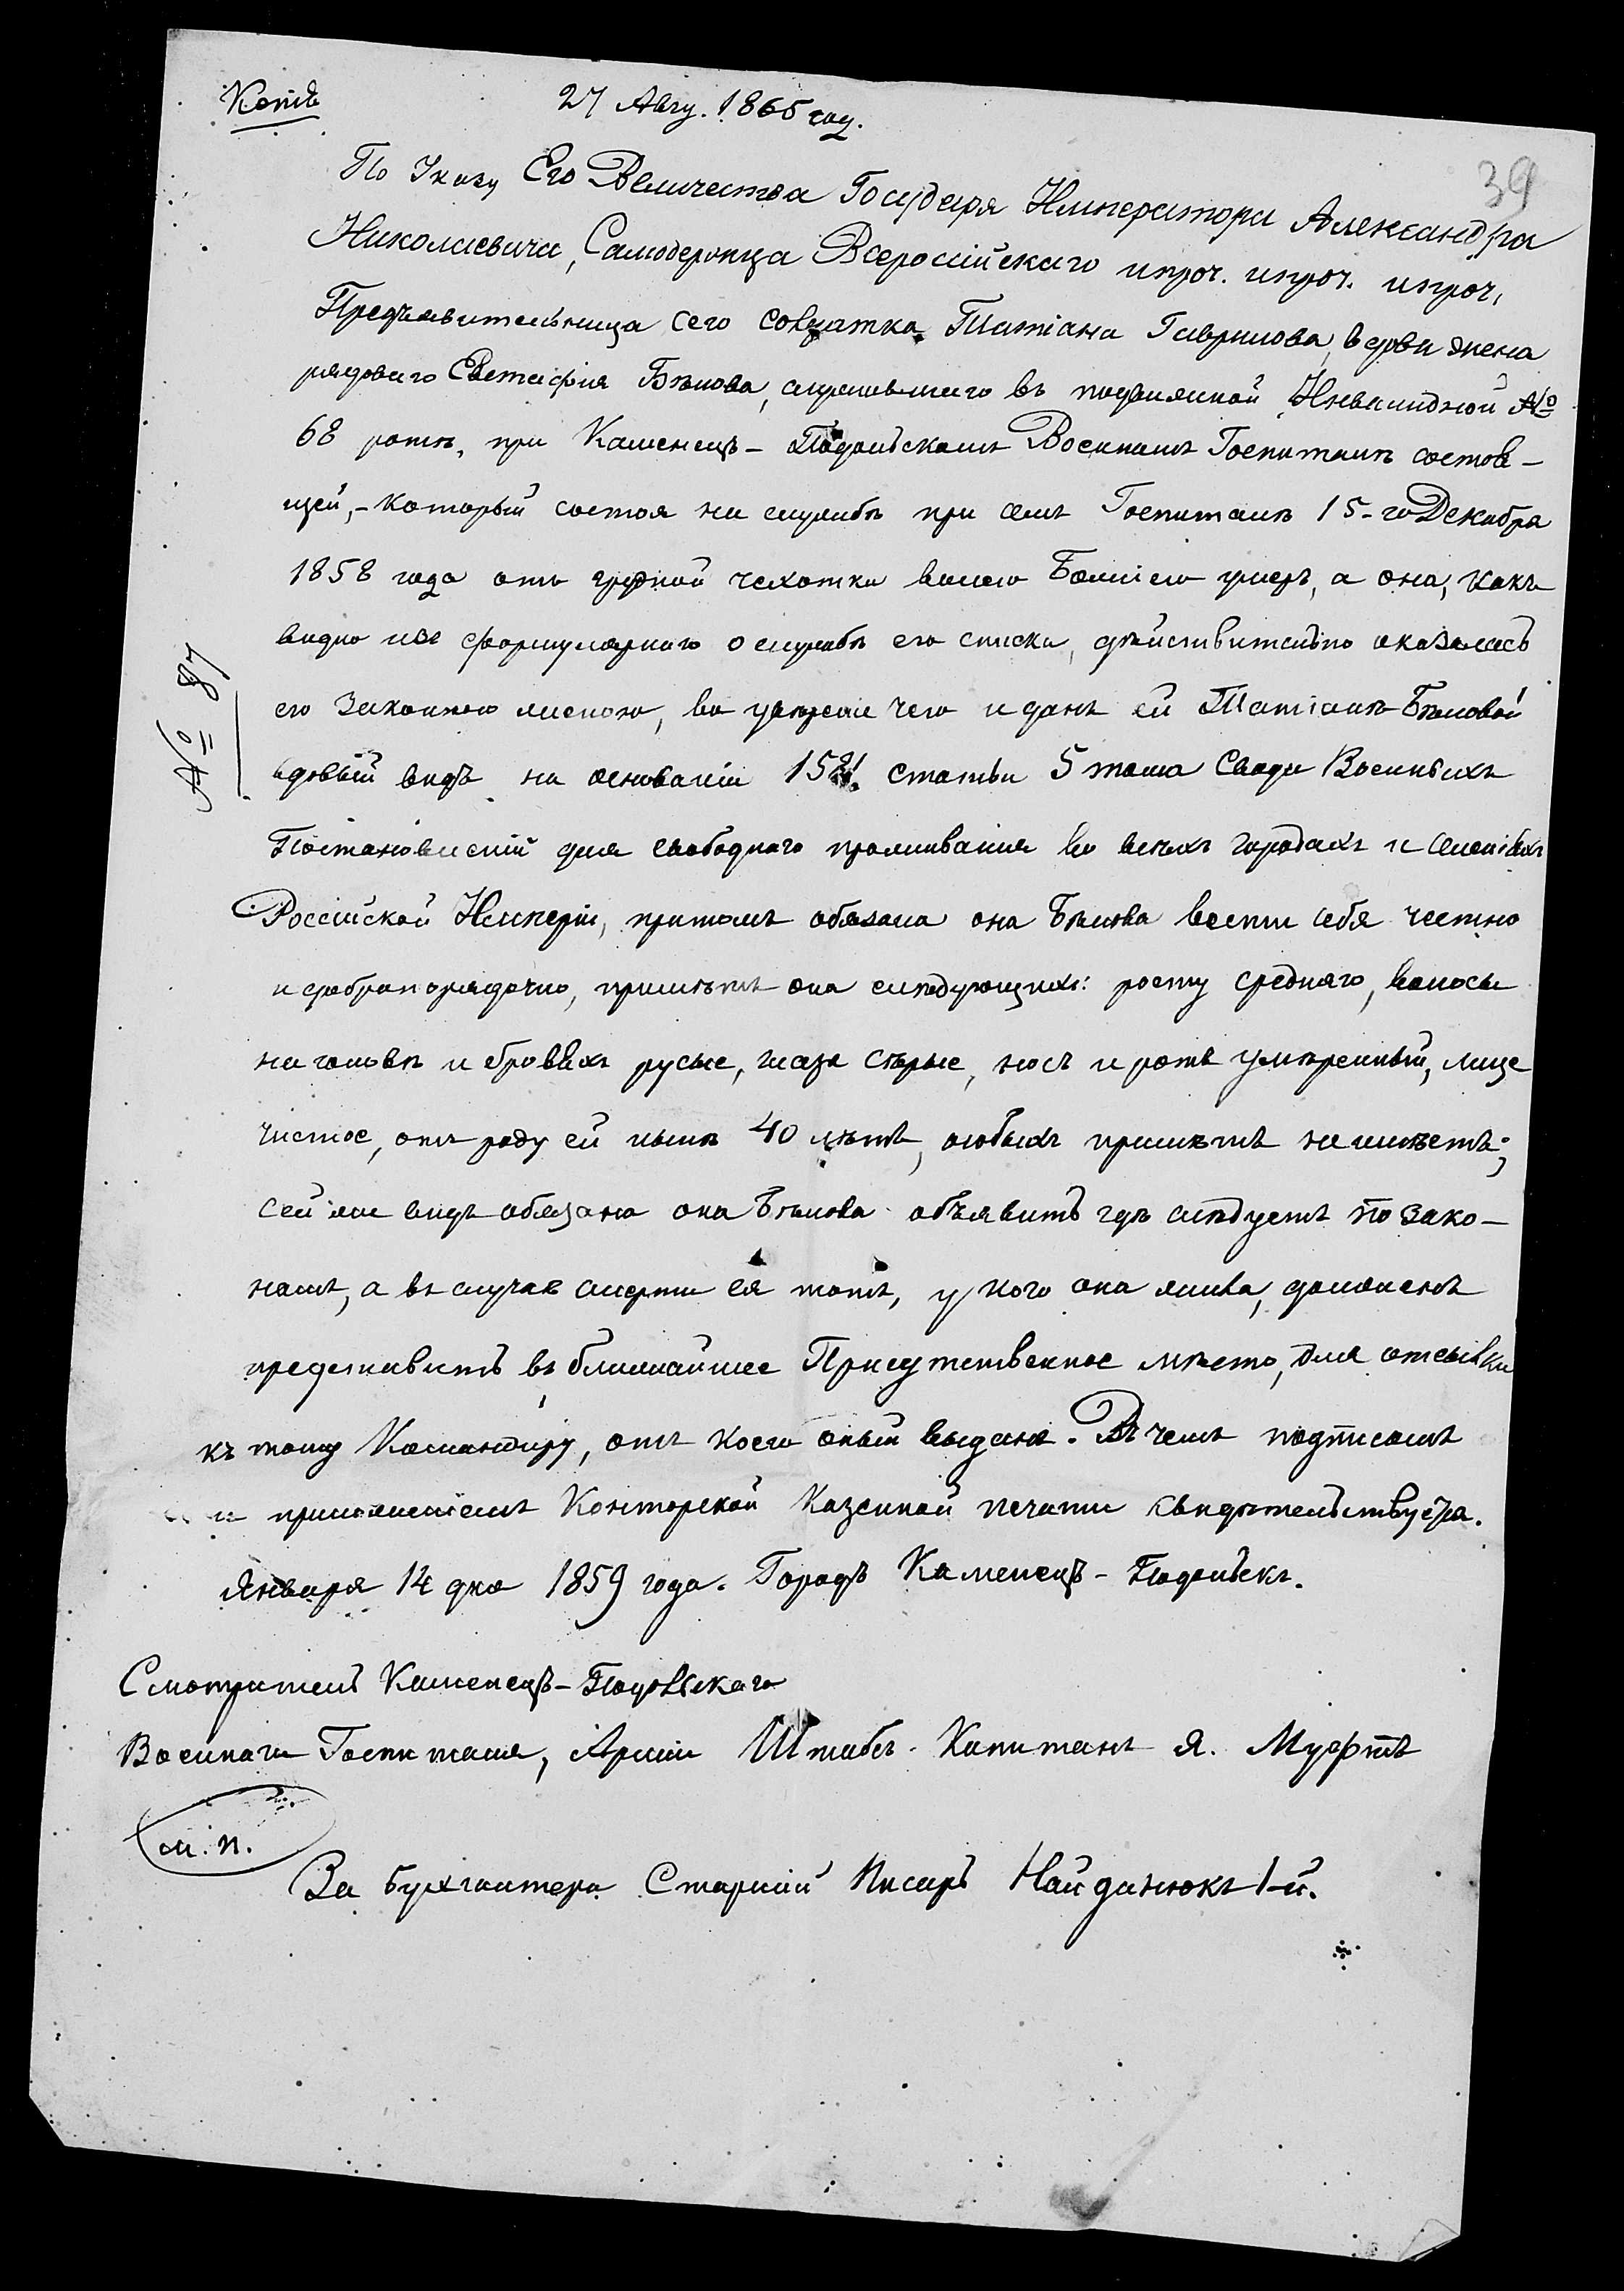 Копія
27 Авгу. 1865 год.
39
По Указу Его Величества Государя Императора Александра
Николаевича, Самодержца Всероссійскаго ипроч. ипроч. ипроч,
Предъявительница сего солдатка Татіана Гаврилова, вдова жена
рядоваго Евстафія Бѣлова, служившаго въ подвижной Инвалидной №
68 ротѣ, при Каменецъ-Подольскомъ Военномъ Госпиталѣ состоя-
щей,- который состоя на службѣ при семъ Госпиталѣ 15-го Декабря
1858 года отъ грудной чахотки волею Божіею умеръ, а она, какъ
видно изъ формулярнаго о службѣ его списка, дѣйствительно оказалась
его законною женою, во уваженіе чего и данъ ей Татіанѣ Бѣловой
вдовый видъ на основаніи 1521 статьи 5 тома Свода Военныхъ
Постановленій для свободнаго проживанія во всѣхъ городахъ и селеніяхъ
Россійской Имперіи, притомъ обязана она Бѣлова вести себя честно
и добропорядочно, примѣтъ она слѣдующихъ: росту средняго, волосы
на головѣ и бровяхъ русые, глаза сѣрые, носъ и ротъ умѣренный, лице
чистое, отъ роду ей нынѣ 40 лѣтъ, особыхъ примѣтъ не имѣетъ;
сей же видъ обязана она Бѣлова объявить гдѣ слѣдуетъ по зако-
намъ, а въ случаѣ смерти ея тотъ, у кого она жила, долженъ
представить въ ближайшее Присутственное мѣсто, для отсылки
къ тому Командиру, отъ коего оный выданъ. Въ чемъ подписомъ
и приложеніемъ Конторской Казенной печати свидѣтельствуется.
Января 14 дня 1859 года. Городъ Каменецъ-Подольскъ.
№ 87
Смотритель Каменецъ-Подольскаго
Военнаго Госпиталя, Арміи Штабсъ-Капитанъ Я. Муфтъ
м.п.
За Бухгалтера Старшій Писарь Найданюкъ 1-й.